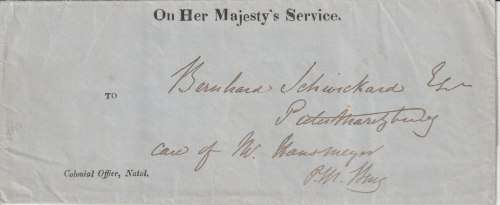 On Her Majesty's Service.
Bernhard Schwickard Esqr
TO
PieterMaritzburg
care of Mr. Hansmeyer
Colonial Office, Natal.
P.M. Burg